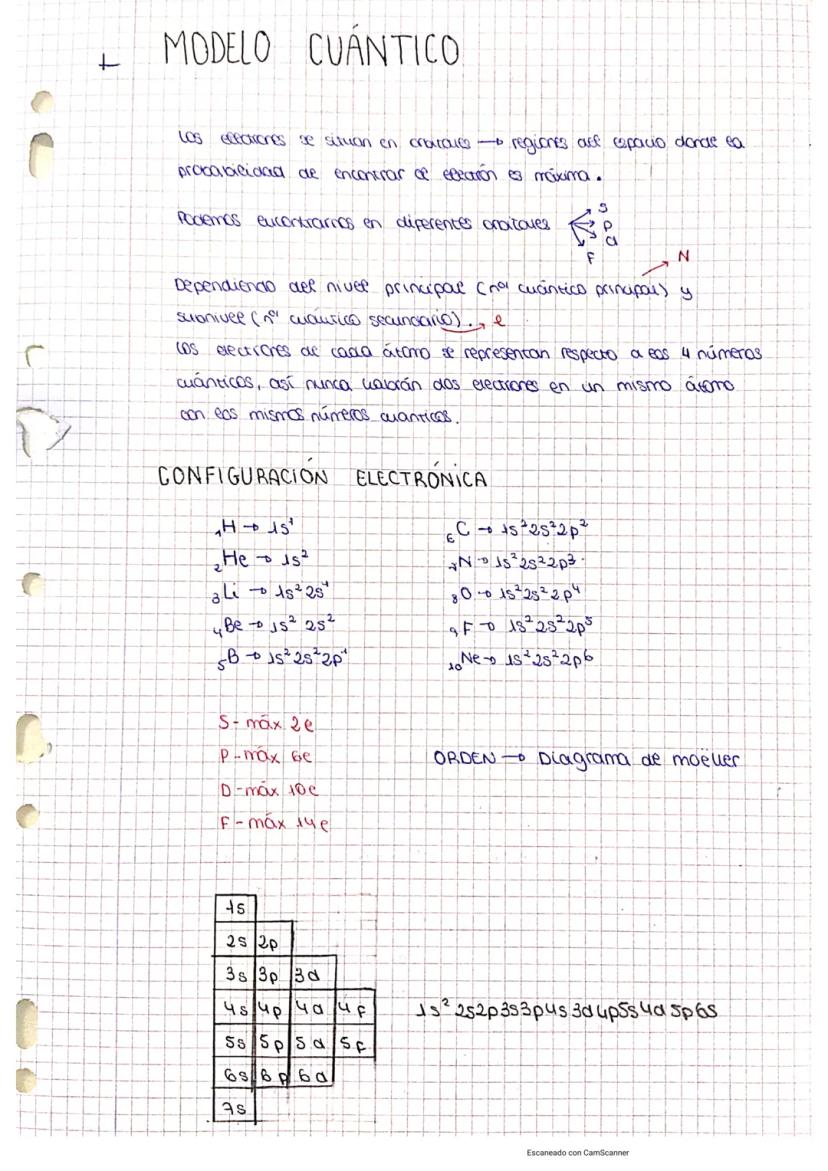 + MODELO CUÁNTICO
Los electrones se situan en orbitales → regiones del espacio donde la
probabilidad de encontrar el electrón es máxima.
Podemos encontrarnos en diferentes orbitales
S
P
d
F
N
Dependiendo del nivel principal (nº cuántico principal) y
subnivel (nº cuántico secundario). → l
Los electrones de cada átomo se representan respecto a los 4 números
cuánticos, así nunca habrán dos electrones en un mismo átomo
con los mismos números cuanticos.
CONFIGURACIÓN ELECTRÓNICA
₁H → 1s¹
₂He → 1s²
₃Li → 1s² 2s¹
₄Be → 1s² 2s²
₅B → 1s² 2s² 2p¹
₆C → 1s² 2s² 2p²
₇N → 1s² 2s² 2p³
₈O → 1s² 2s² 2p⁴
₉F → 1s² 2s² 2p⁵
₁₀Ne → 1s² 2s² 2p⁶
S - máx 2e
P - máx 6e
D - máx 10e
F - máx 14e
ORDEN → Diagrama de moëller
1s
2s 2p
3s 3p 3d
4s 4p 4d 4f
5s 5p 5d 5f
6s 6p 6d
7s
1s² 2s2p3s3p4s3d4p5s4d5p6s
Escaneado con CamScanner